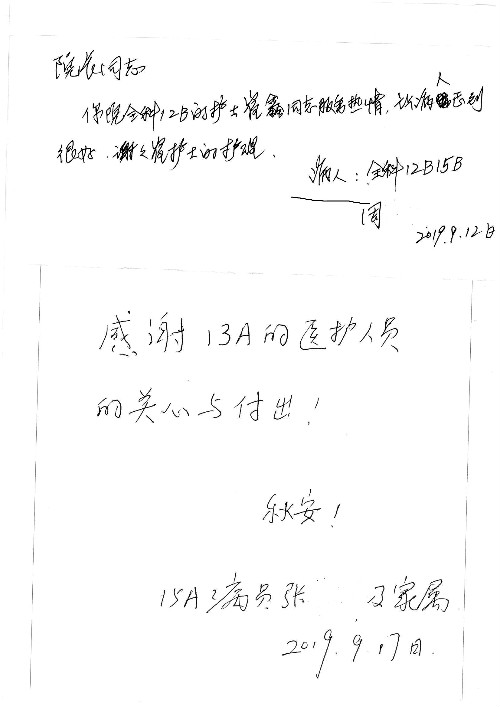 院长同志
你院全科12B的护士崔鑫同志服务热情,对病人照顾到
很好.谢谢崔护士的护理.
病人:全科12B15B
周
2019.9.12日
感谢13A的医护人员
的关心与付出!
秋安!
15A病员张 及家属
2019.9.17日.